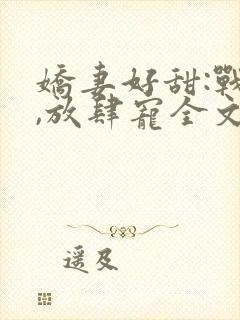 嬌妻好甜:戰
,放肆寵全文
遥及